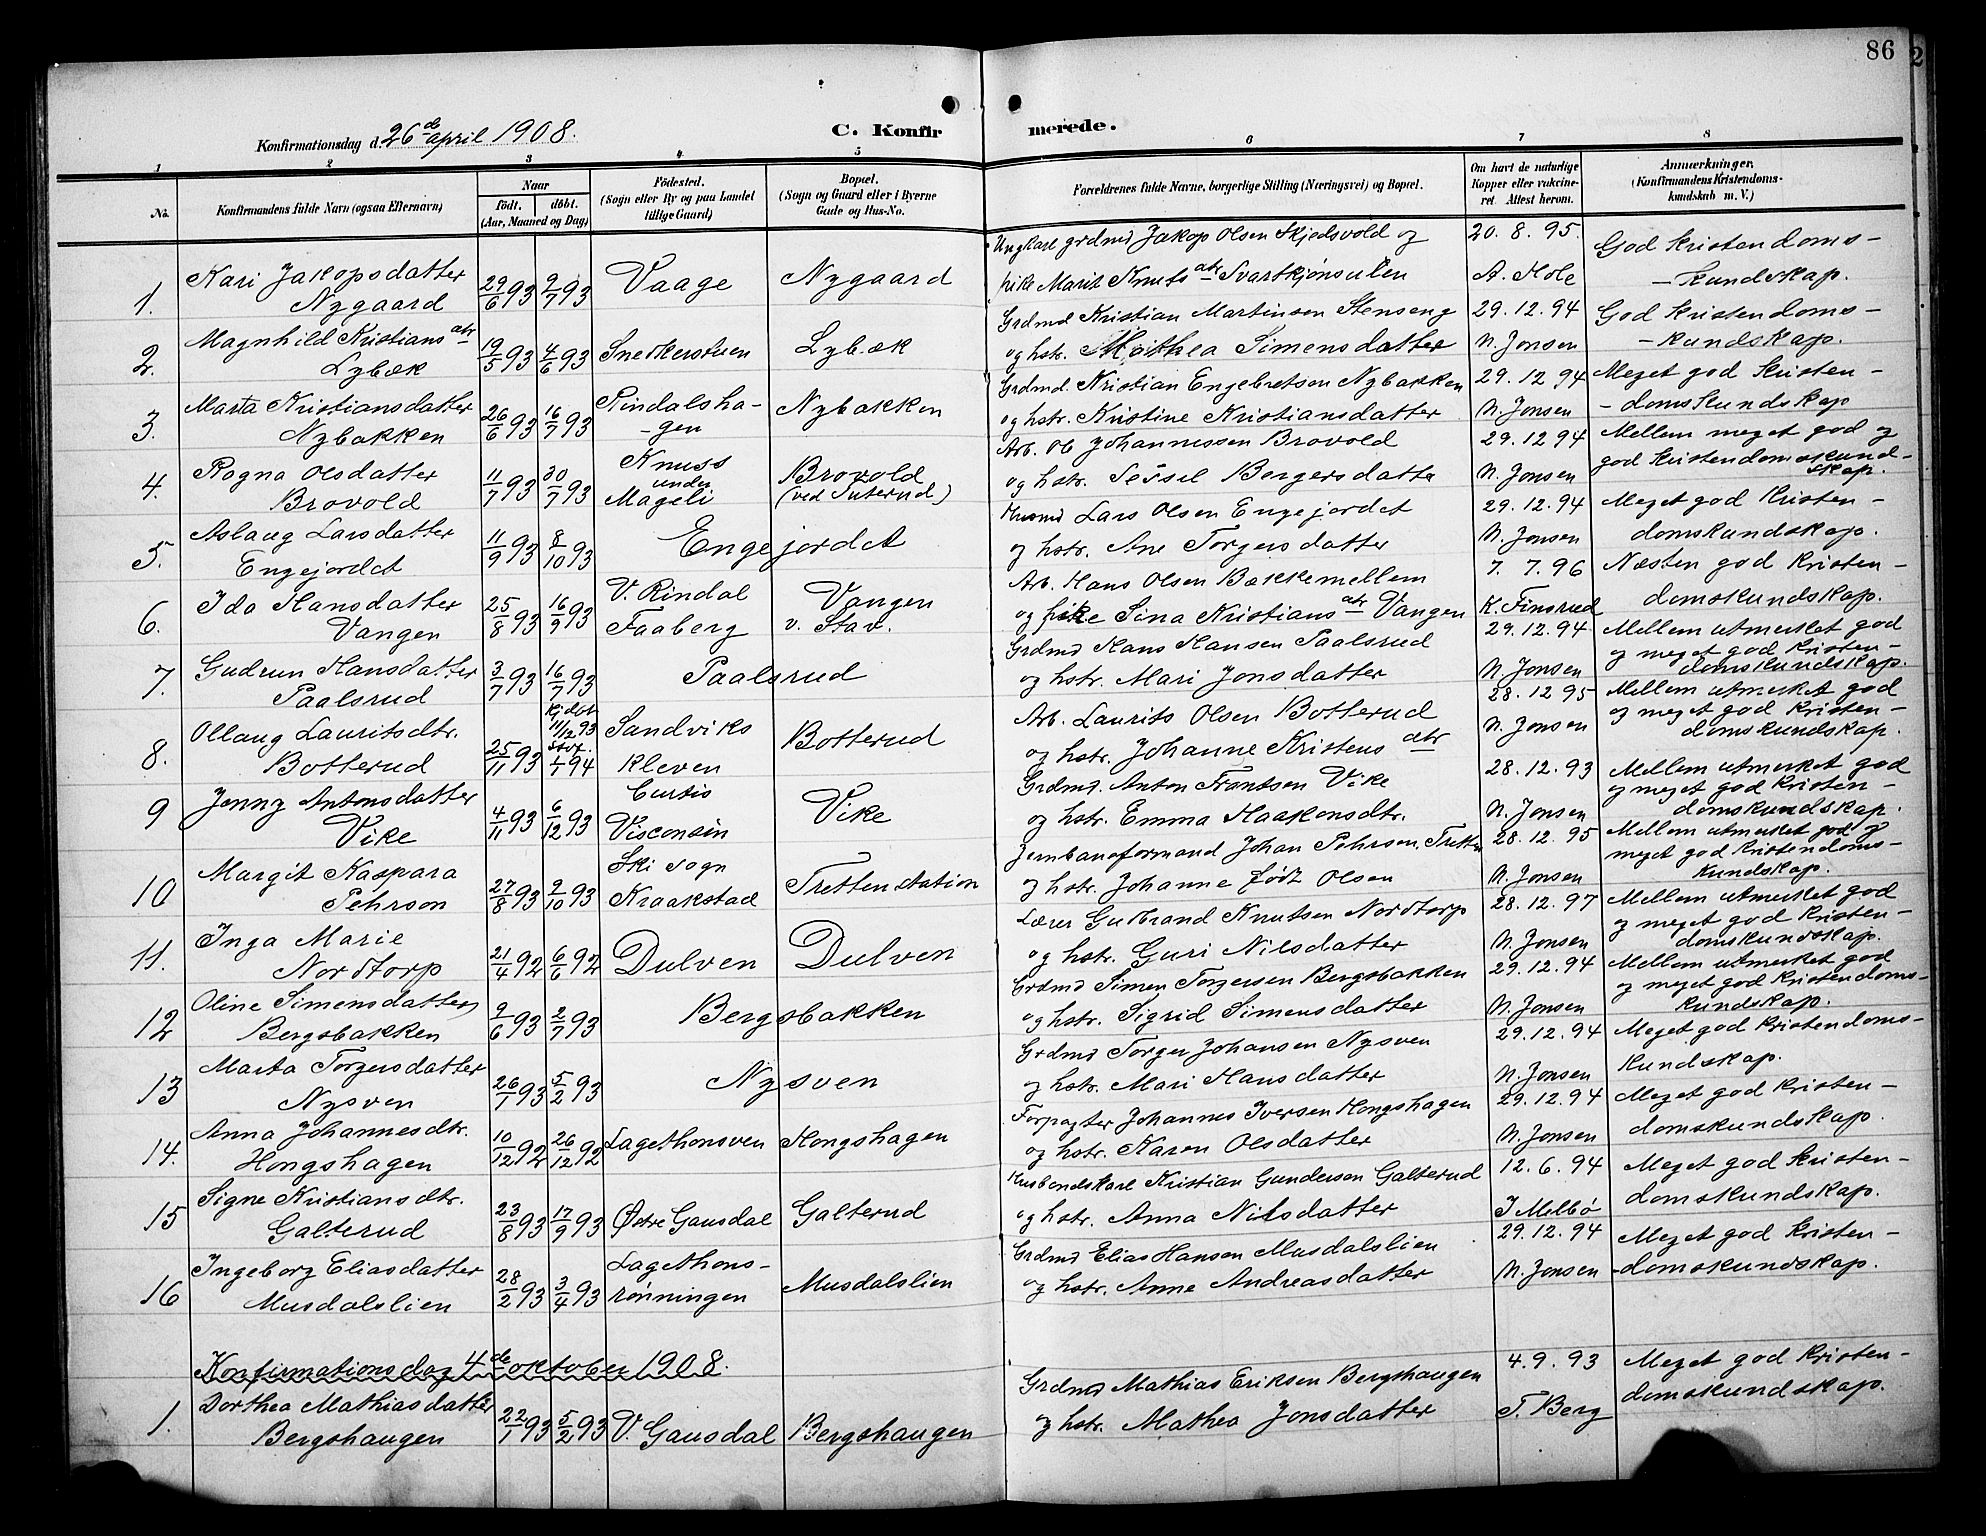 86
Konfirmationsdag d. 26de april 1908.
C. Konfirmerede.
1 2 3 4 5 6 7 8
No.
Konfirmandens fulde Navn (ogsaa Efternavn)
Naar
født. døbt.
(Aar, Maaned og Dag)
Fødested.
(Sogn eller By og paa Landet
tillige Gaard)
Bopæl.
(Sogn og Gaard eller i Byerne
Gade og Hus-No.
Forældrenes fulde Navne, borgerlige Stilling (Næringsvei) og Bopæl.
Om havt de naturlige
Kopper eller vakcine-
ret. Attest herom.
Anmærkninger.
(Konfirmandens Kristendoms-
kundskab m. V.)
1. Kari Jakopsdatter
Nygaard
29/6 93 9/7 93 Vaage Nygaard
Ungkarl grdmd Jakop Olsen Skjedsvold og
pike Marit Knutsdtr Svartkjønsulen
20. 8. 95.
A. Hole
God kristendoms-
-kundskap.
2. Magnhild Kristiansdtr
Lybæk
19/5 93 4/6 93 Snekkerstuen Lybæk
Grdmd Kristian Martinsen Stenseng
og hstr. Mathea Simensdatter
29. 12. 94
N. Jonsen
God kristendoms-
-kundskap.
3. Marta Kristiansdatter
Nybakken
26/6 93 16/7 93 Rindalsha-
-gen
Nybakken
Grdmd Kristian Engebretsen Nybakken
og hstr. Kristine Kristiansdatter
29. 12 94
N. Jonsen
Meget god kristen-
-domskundskap
4. Ragna Olsdatter
Brovold
11/7 93 30/7 93 Knuss
under
Mageli
Brovold
(ved Suterud)
Arb. Ole Johannessen Brovold
og hstr. Sessel Bergersdatter
29. 12 94
N. Jonsen
Mellem meget god og
god kristendomskund-
skap.
5. Aslaug Larsdatter
Engejordet
11/9 93 8/10 93 Engejordet
Husmd Lars Olsen Engejordet
og hstr. Ane Torgersdatter
29. 12. 94
N. Jonsen
Meget god kristen-
domskundskap.
6. Ida Hansdatter
Vangen
25/8 93 16/9 93 V. Rindal
Faaberg
Vangen
v. Stav.
Arb. Hans Olsen Bækkemellem
og pike Sina Kristiansdtr Vangen
7. 7. 96
K. Finsrud
Næsten god kristen-
domskundskap.
7. Gudrun Hansdatter
Paalsrud
3/7 93 16/7 93 Paalsrud
Grdmd Hans Hansen Paalsrud
og hstr. Mari Jonsdatter
29. 12. 94
N. Jonsen
Mellem utmerket god
og meget god kristen-
domskundskap.
8. Ollaug Lauritsdtr.
Botterud
25/11 93 hjdbt
11/12 93
stdf.
1/1 94
Sandviks
kleven
Botterud
Arb. Laurits Olsen Botterud
og hstr. Johanne Kristensdtr
28. 12 95
N. Jonsen
Mellem utmerket god
og meget god kristen-
domskundskap.
9 Jenny Antonsdatter
Vike
4/11 93 6/12 93 Curtis
Visconsin
Vike
Grdmd. Anton Frantsen Vike
og hstr. Emma Haakonsdtr.
28. 12. 93
N. Jonsen
Mellem utmerket god
og meget god kristen-
domskundskap.
10 Margit Kaspara
Pehrson
27/8 93 2/10 93 Ski sogn
Kraakstad
Tretten station
Jernbaneformand Johan Pehrson, Tretten
og hstr. Johanne født Olsen
28. 12. 95
N. Jonsen
Mellem utmerket god og
meget god kristendoms-
kundskap.
11. Inga Marie
Nordtorp
21/4 92 6/6 92 Dulven Dulven
Lærer Gulbrand Knutsen Nordtorp
og hstr. Guri Nilsdatter
28. 12. 97
N. Jonsen
Mellem utmerket god
og meget god kristen-
domskundskap.
12 Oline Simensdatter
Bergsbakken
9/6 93 2/7 93 Bergsbakken
Grdmd Simen Torgersen Bergsbakken
og hstr. Sigrid Simensdatter
29. 12. 94
N. Jonsen
Mellem utmerket god
og meget god kristendoms-
kundskap.
13 Marta Torgersdatter
Nysven
26/1 93 5/2 93 Nysven
Grdmd Torger Johansen Nysven
og hstr. Mari Hansdatter
29. 12. 94
N. Jonsen
Meget god kristendoms-
kundskap.
14. Anna Johannesdtr.
Hongshagen
10/12 92 26/12 92 Lagethonsven Hongshagen
Forpagter Johannes Iversen Hongshagen
og hstr. Karen Olsdatter
29. 12. 94
N. Jonsen
Meget god kristen-
domskundskap.
15 Signe Kristiansdtr.
Galterud
23/8 93 17/9 93 Østre Gausdal Galterud
Husbondskarl Kristian Gundersen Galterud
og hstr. Anna Nilsdatter
12. 6. 94
J Melbö
Meget god kristen-
domskundskap.
16 Ingeborg Eliasdatter
Musdalslien
28/2 93 3/4 93 Lagethons-
rønningen
Musdalslien
Grdmd Elias Hansen Musdalslien
og hstr. Anne Andreasdatter
29. 12. 94
N. Jonsen
Meget god kristen-
-domskundskap.
Konfirmationsdag 4de oktober 1908.
1. Dorthea Mathiasdatter
Bergshaugen
22/1 93 5/2 93 V. Gausdal Bergshaugen
Grdmd Mathias Eriksen Bergshaugen
og hstr. Mathea Jonsdatter
4. 9. 93
T. Berg
Meget god kristen-
domskundskap.